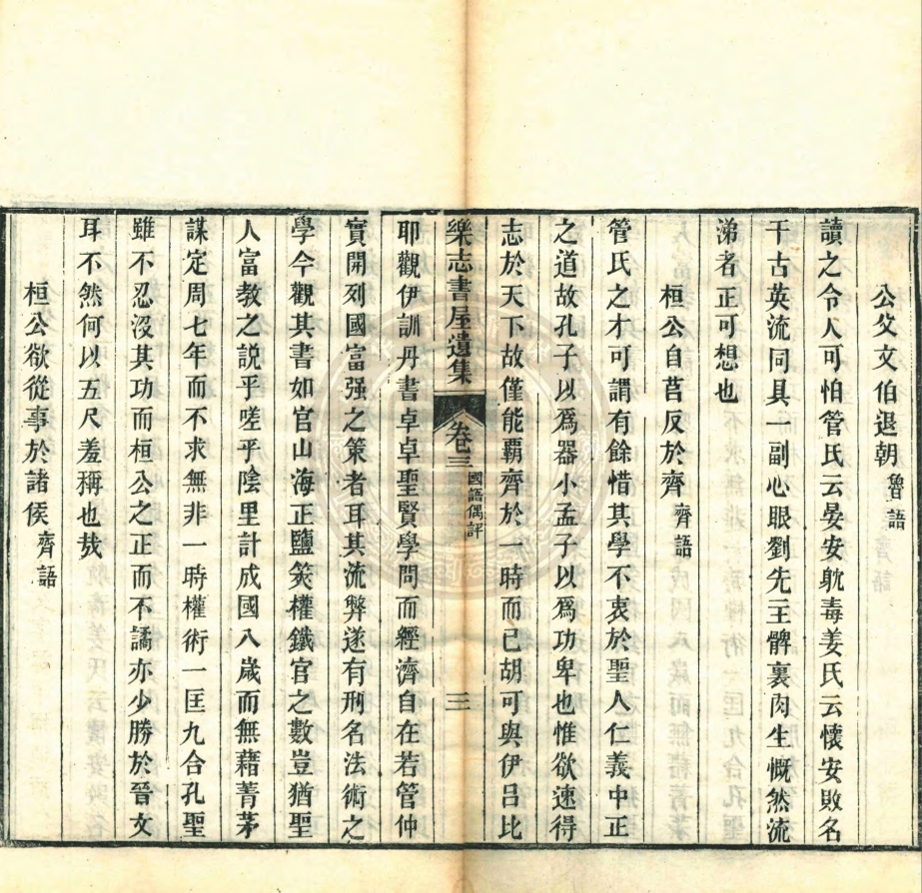 公父文伯退朝 魯語
讀之令人可怕管氏云晏安躭毒姜氏云懷安敗名
千古英流同具一副心眼劉先主髀裏肉生慨然流
涕者正可想也
桓公自莒反於齊 齊語
管氏之才可謂有餘惜其學不衷於聖人仁義中正
之道故孔子以爲器小孟子以爲功卑也惟欲速得
志於天下故僅能覇齊於一時而已胡可與伊呂比
樂志書屋遺集 卷三 國語偶評 三
耶觀伊訓丹書卓卓聖賢學問而經濟自在若管仲
實開列國富强之策者耳其流弊遂有刑名法術之
學今觀其書如官山海正鹽筴權鐵官之數豈猶聖
人富教之説乎嗟乎陰里計成國八歲而無藉菁茅
謀定周七年而不求無非一時權術一匡九合孔聖
雖不忍沒其功而桓公之正而不譎亦少勝於晉文
耳不然何以五尺羞稱也哉
桓公欲從事於諸侯 齊語